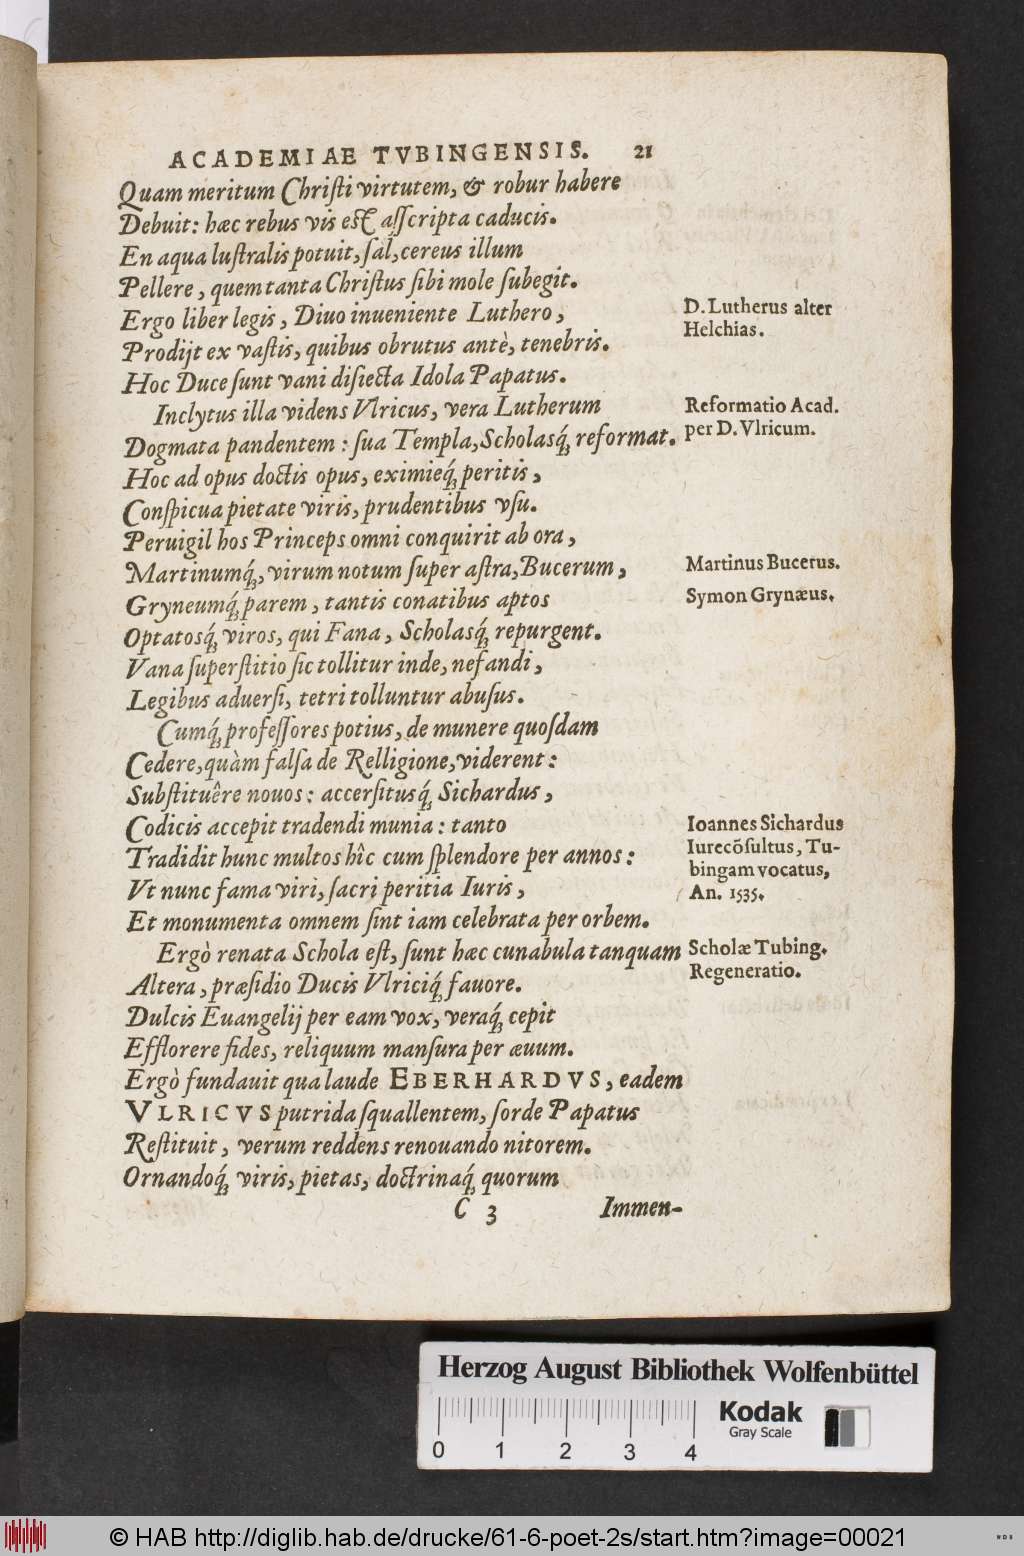 ACADEMIAE TVBINGENSIS. 21
Quam meritum Chriſti virtutem, & robur habere
Debuit: hæc rebus vis eſt aſſcripta caducis.
En aqua luſtralis potuit, ſal, cereus illum
Pellere, quem tanta Chriſtus ſibi mole ſubegit.
Ergo liber legis, Diuo inueniente Luthero,
D. Lutherus alter
Helchias.
Prodijt ex vaſtis, quibus obrutus antè, tenebris.
Hoc Duce ſunt vani diſiecta Idola Papatus.
Inclytus illa videns Vlricus, vera Lutherum
Reformatio Acad.
per D. Vlricum.
Dogmata pandentem: ſua Templa, Scholasq́ꝫ reformat.
Hoc ad opus doctis opus, eximieq́ꝫ peritis,
Conſpicua pietate viris, prudentibus vſu.
Peruigil hos Princeps omni conquirit ab ora,
Martinumq́ꝫ, virum notum ſuper aſtra, Bucerum,
Martinus Bucerus.
Gryneumq́ꝫ parem, tantis conatibus aptos
Symon Grynæus.
Optatosq́ꝫ viros, qui Fana, Scholasq́ꝫ repurgent.
Vana ſuperſtitio ſic tollitur inde, nefandi,
Legibus aduerſi, tetri tolluntur abuſus.
Cumq́ꝫ profeſſores potius, de munere quoſdam
Cedere, quàm falſa de Relligione, viderent:
Subſtituêre nouos: accerſitusq́ꝫ Sichardus,
Codicis accepit tradendi munia: tanto
Ioannes Sichardus
Iurecõſultus, Tu-
bingam vocatus,
An. 1535.
Tradidit hunc multos hîc cum ſplendore per annos:
Vt nunc fama viri, ſacri peritia Iuris,
Et monumenta omnem ſint iam celebrata per orbem.
Ergò renata Schola eſt, ſunt hæc cunabula tanquam
Scholæ Tubing.
Regeneratio.
Altera, præſidio Ducis Vlriciq́ꝫ fauore.
Dulcis Euangelij per eam vox, veraq́ꝫ cepit
Efflorere fides, reliquum manſura per æuum.
Ergò fundauit qua laude EBERHARDVS, eadem
VLRICVS putrida ſquallentem, ſorde Papatus
Reſtituit, verum reddens renouando nitorem.
Ornandoq́ꝫ viris, pietas, doctrinaq́ꝫ quorum
C 3 Immen-
Herzog August Bibliothek Wolfenbüttel
Kodak
Gray Scale
0 1 2 3 4
© HAB http://diglib.hab.de/drucke/61-6-poet-2s/start.htm?image=00021